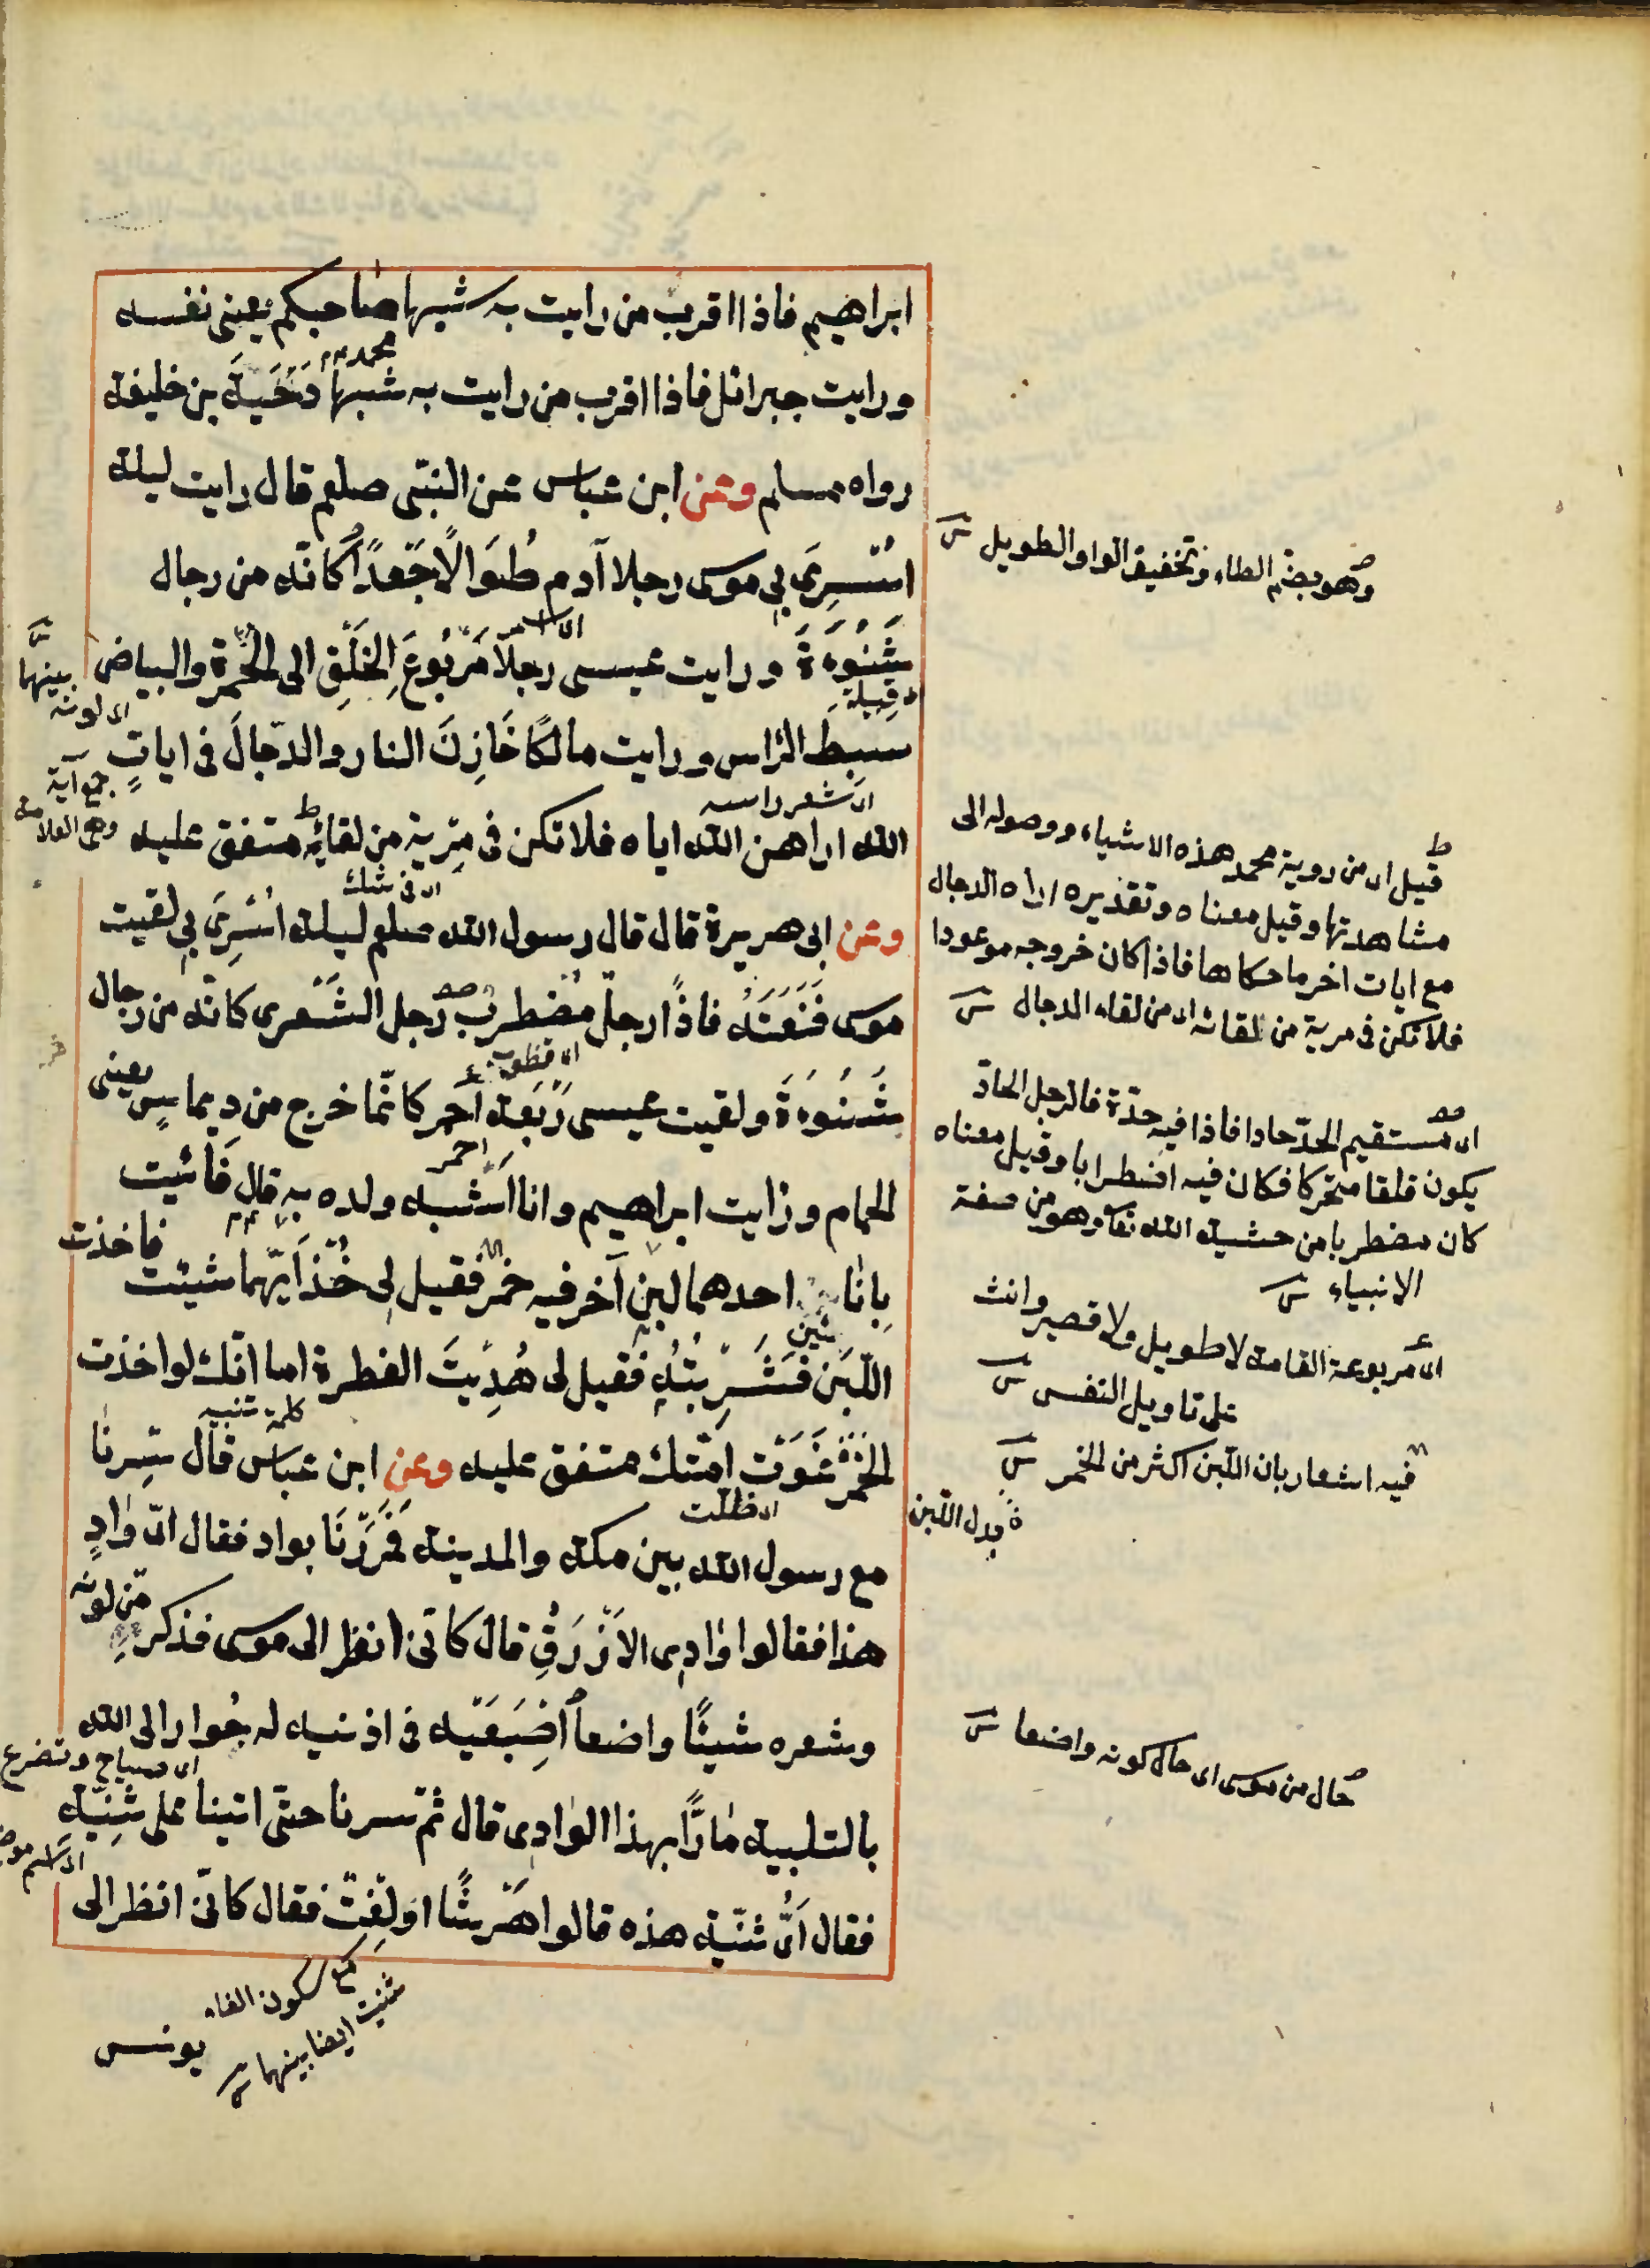 ابراهيم فاذا اقرب من رايت به شبها صاحبكم يعنى نفسه
محمد
ورايت جبرائل فاذا اقرب من رايت به شبها دَحْيَةَ بن خليفة
رواه مسلم وعن ابن عباس عن النبى صلعم قال رايت ليلة
اُسْرِىَ بى موسى رجلا آدم طُوَالًا جَعدًا كانّه من رجال
شَنُوءَةَ ورايت عيسى رجلا مَرْبُوعَ الخَلْقِ الى الحُمرة والبياض
قبيلة
بينهما
اى لونه
سبط الرّاس ورايت مالكًا خَازِنَ النار والدّجالَ فى اياتٍ
اى شعر راسه
جمع آية
وهى العلامة
الله اراهن الله اياه فلا تكن فى مِرْية من لقائِه متفق عليه
اى فى شك
وعن ابى هريرة قال قال رسول الله صلعم ليلة اُسْرِىَ بى لقيت
موسى فَنَعَتَهُ فاذًا رجلٌ مُضْطرب رَجل الشَعرى كانّه من رجال
شَنُوءَةَ ولقيت عيسى رَبْعة احمر كانّما خرج من دِيماسٍ يعنى
احمر
الحمام ورايت ابراهيم وانا اَشْبه ولده به قال فَاُتيت
بِانا ئين احدهما لبن آخر فيه خمر فقيل لى خُذ اَيَّهما شيئت
فاخذت
اللّبَن فَشَرِبْتُهُ فقيل لى هُدِيتَ الفطرة اما انّك لو اخذت
كلمة تنبيه
الخمْر غَوَتْ امّتك متفق عليه وعن ابن عباس قال سِرنا
اى ضللت
مع رسول الله بين مكة والمدينة فَمَرَرْنَا بواد فقال اىّ وَادٍ
هذا فقالوا وَادِى الازْرَقِ قال كانّى انظر الى موسى فذكر
من لونه
وشعره شيئًا واضعاً اصْبَعَيْه فى اذنيه له جُوار الى الله
اى صياح وتضرع
بالتلبية مارًّا بهذا الوَادِى قال ثمّ سرنا حتّى اتينا على ثنِيّة
فقال اَىُّ ثنيّة هذه قالوا هَرْشًا او لِفت فقال كانّى انظر الى
يونس
وهو بضم الطاء وتخفيف الواو الطويل
قيل اى من روية محمد هذه الاشياء ووصوله الى
مشاهدتها وقيل معناه وتقديره اراه الدجال
مع ايات اخر ما حكاها فاذا كان خروجه موعودا
فلا تكن فى مرية من لقائه اى من لقاء الدجال
اى مستقيم الحدّ حادا فاذا فيه حدّة فالرجل الحادّ
يكون قلقا متحركا فكان فيه اضطرابا وقيل معناه
كان مضطربا من خشية الله تعا وهو من صفة
الانبياء
اى مربوعة القامة لا طويل ولا قصير وانث
على تاويل النفس
فيه اشعار بان اللبن اكثر من الخمر
بدل اللبن
حال من موسى اى حال كونه واضعا
مع سكون الفاء